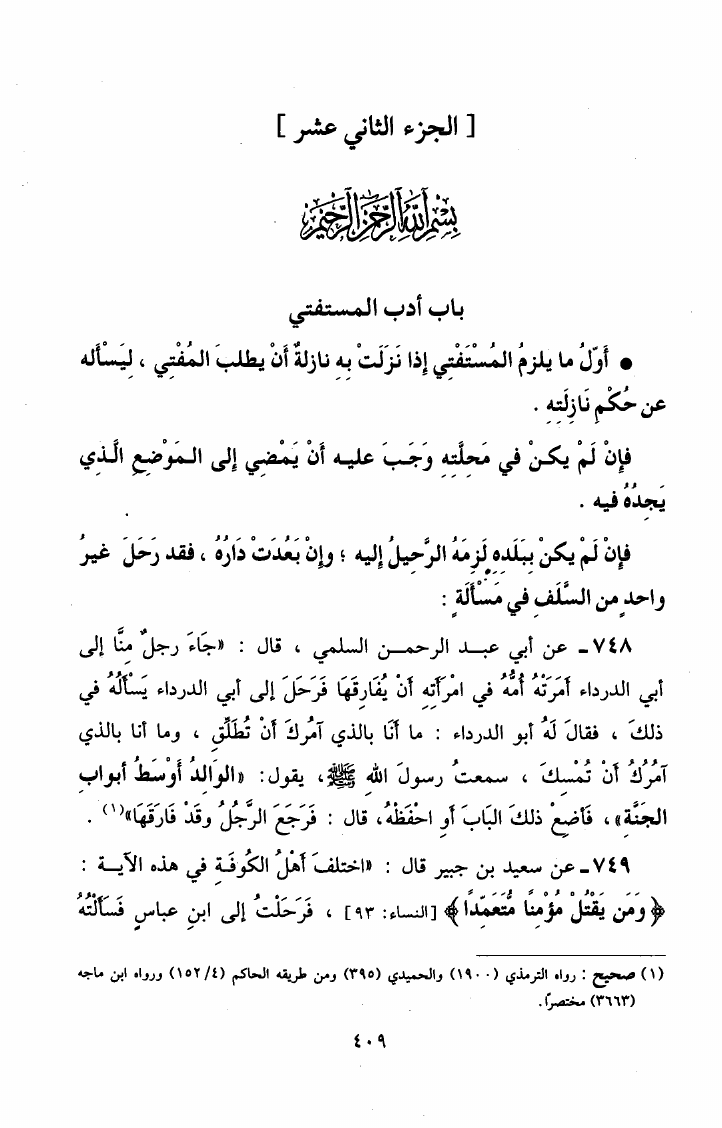 [ الجزء الثاني عشر ]
بِسْمِ اللَّهِ الرَّحْمَنِ الرَّحِيمِ
باب أدب المستفتي
● أَوّلُ ما يلزمُ المُسْتَفْتِي إذا نَزَلَتْ بِه نازلةٌ أَنْ يطلبَ المُفْتي ، ليَسْأَله
عن حُكْمِ نَازِلَتِه .
فإِنْ لَمْ يكنْ في مَحلَّتِه وَجَبَ عليه أَنْ يَمْضِي إلى المَوْضعِ الَّذي
يَجِدُهُ فيه .
فإِنْ لَمْ يكنْ بِبَلَدِه لَزِمَهُ الرَّحيلُ إليه ؛ وإِنْ بَعُدَتْ دَارُهُ ، فقد رَحَلَ غيرُ
واحدٍ من السَّلَفِ في مَسْأَلَةٍ :
٧٤٨ـ عن أبي عبد الرحمن السلمي ، قال : «جَاءَ رجلٌ مِنَّا إلى
أبي الدرداء أمَرَتْهُ أُمُّهُ في امْرأَتِه أَنْ يُفَارِقَهَا فَرَحَلَ إلى أبي الدرداء يَسْأَلُهُ في
ذلكَ ، فقالَ لَهُ أبو الدرداء : ما أَنَا بالذي آمُركَ أَنْ تُطَلِّقِ ، وما أنا بالذي
آمُرُكُ أَنْ تُمْسِكَ ، سمعتُ رسولَ اللهِ ﷺ، يقول: «الوَالدُ أَوْسَطُ أبوابِ
الجَنَّة»، فَأَضِعْ ذلكَ البَابَ أو احْفَظْهُ، قال : فَرَجَعَ الرَّجُلُ وقَدْ فَارَقَهَا»(١) .
٧٤٩ـ عن سعيد بن جبير قال : «اختلفَ أهْلُ الكُوفَةِ في هذه الآيـة :
﴿وَمَن يَقْتُلْ مُؤْمِنًا مُّتَعَمِّدًا﴾ [النساء: ٩٣] ، فَرَحَلْتُ إلى ابنِ عباسٍ فَسَأَلْتُهُ
(١) صحيح : رواه الترمذي (١٩٠٠) والحميدي (٣٩٥) ومن طريقه الحاكم (١٥٢/٤) ورواه ابن ماجه
(٣٦٦٣) مختصرًا.
٤٠٩